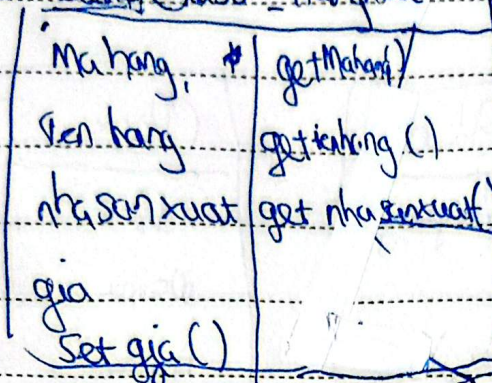 Mahang, * getMahang()
Ten hang getTenhang ()
nhasanxuat get nhasanxuat(
gia
Set gia ()